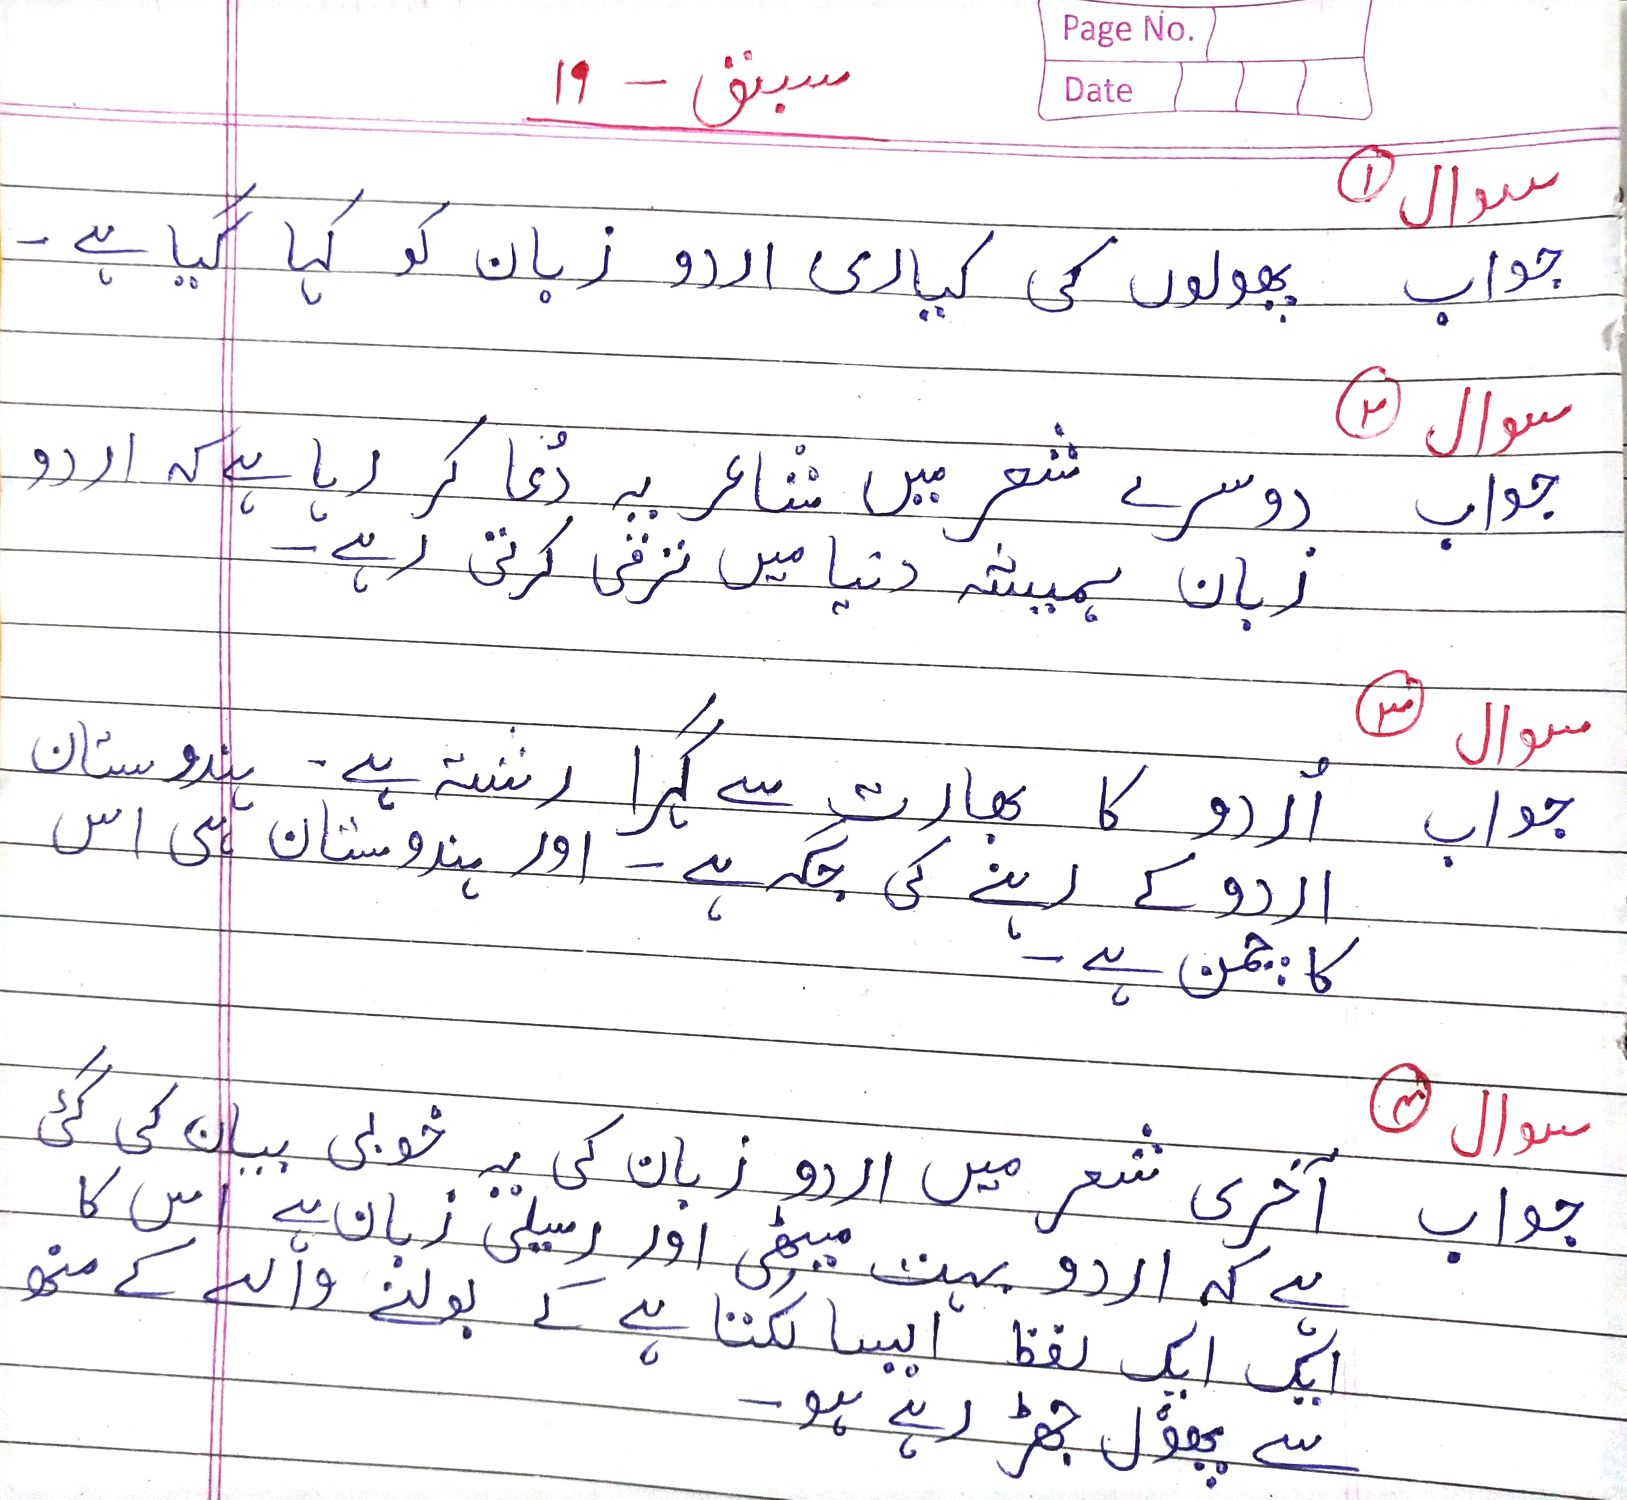 Page No.
Date
سبق - ۱۹
سوال ۱
جواب پھولوں کی کیاری اردو زبان کو کہا گیا ہے -
سوال ۲
جواب دوسرے شعر میں شاعر یہ دُعا کر رہا ہے کہ اردو
زبان ہمیشہ دنیا میں ترقی کرتی رہے -
سوال ۳
جواب اُردو کا بھارت سے گہرا رشتہ ہے - ہندوستان
اردو کے رہنے کی جگہ ہے - اور ہندوستان ہی اس
کا چمن ہے -
سوال ۴
جواب آخری شعر میں اردو زبان کی یہ خوبی بیان کی گئی
ہے کہ اردو بہت میٹھی اور رسیلی زبان ہے اس کا
ایک ایک لفظ ایسا لگتا ہے کے بولنے والے کے منھ
سے پھول جھڑ رہے ہو -